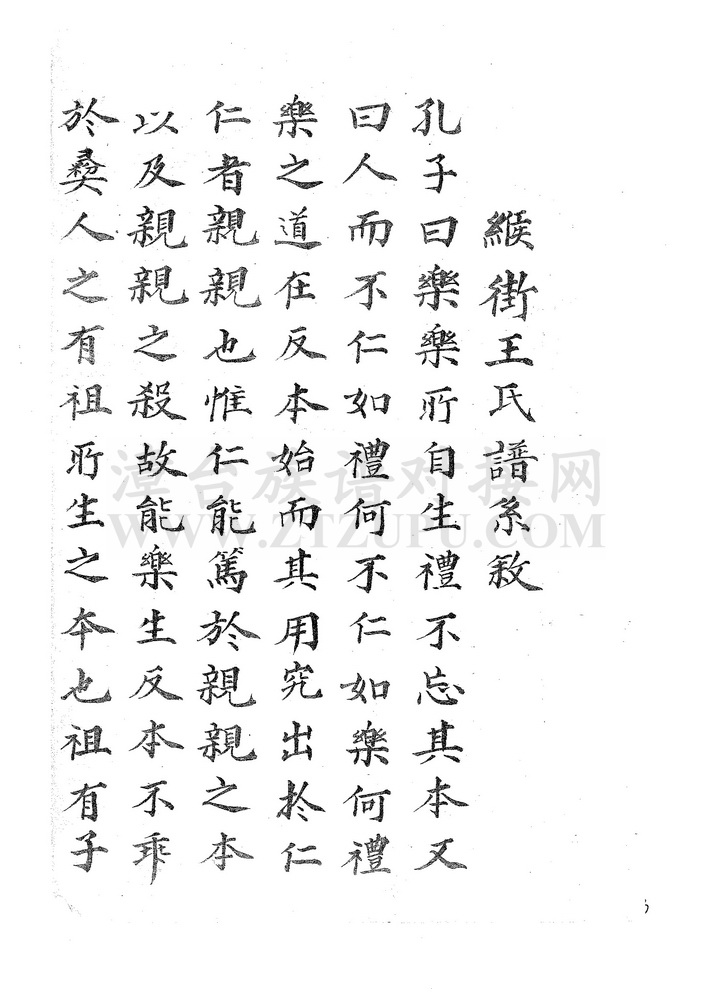 緱街王氏譜系敘
孔子曰樂樂所自生禮不忘其本又
曰人而不仁如禮何不仁如樂何禮
樂之道在反本始而其用究出於仁
仁者親親也惟仁能篤於親親之本
以及親親之殺故能樂生反本不乖
於彝人之有祖所生之本也祖有子
漳台族谱对接网
WWW.ZTZUPU.COM